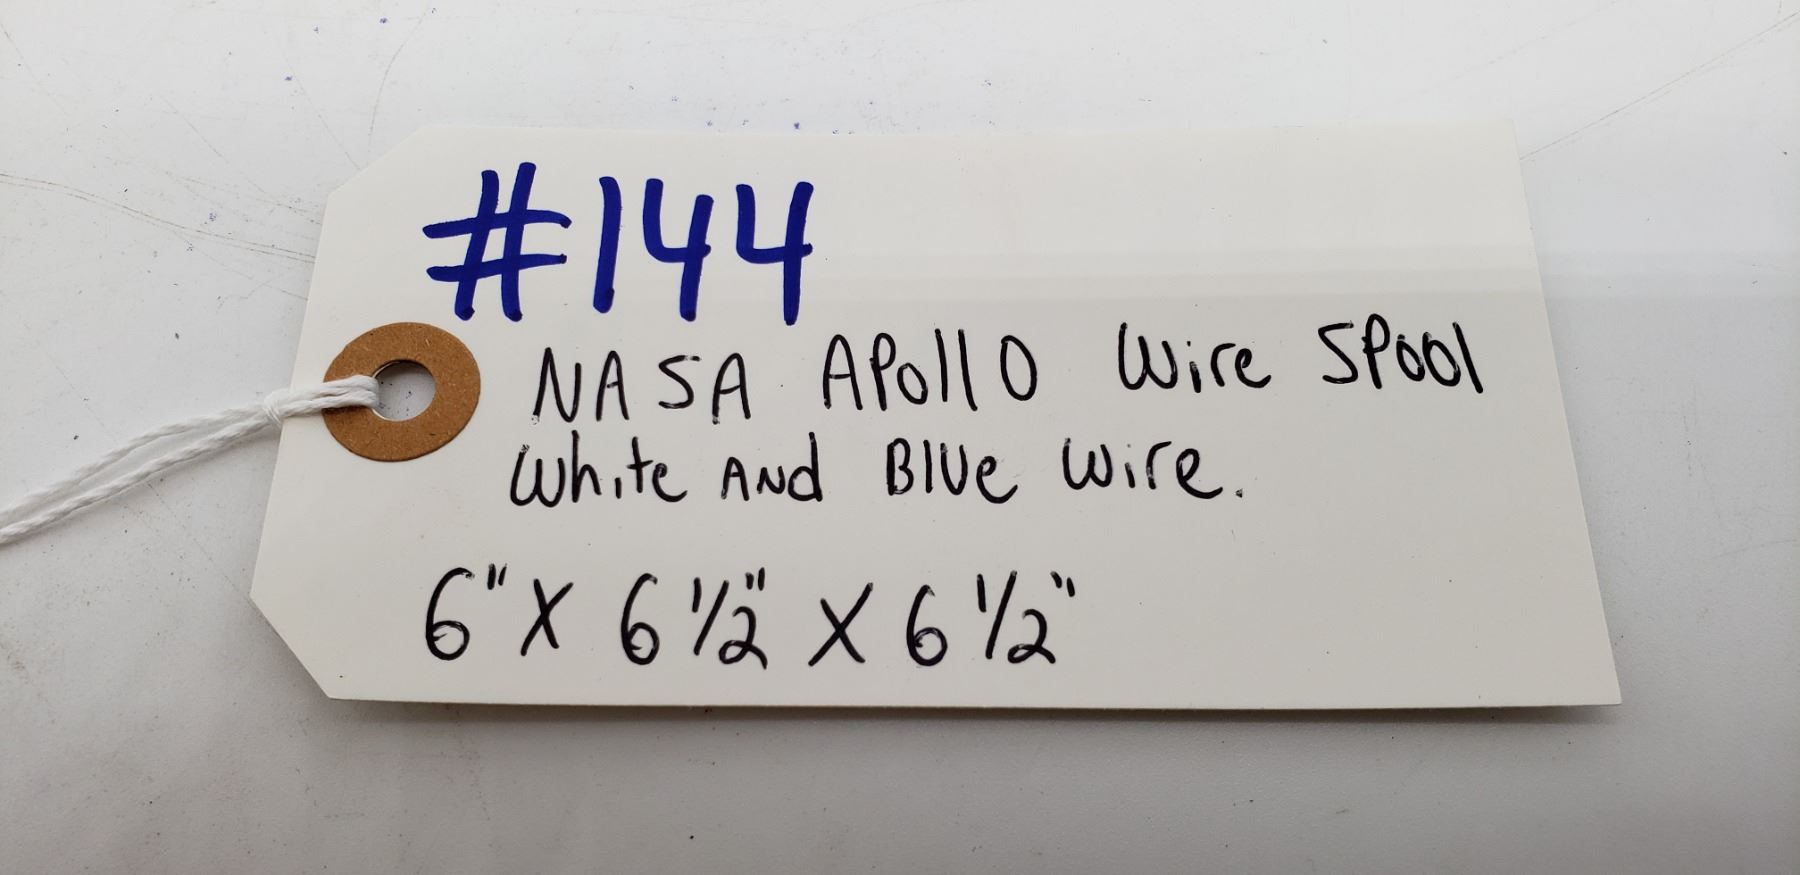 #144
NASA APollO Wire SPool
White ANd BlUe Wire.
6" X 6 1/2" X 6 1/2"